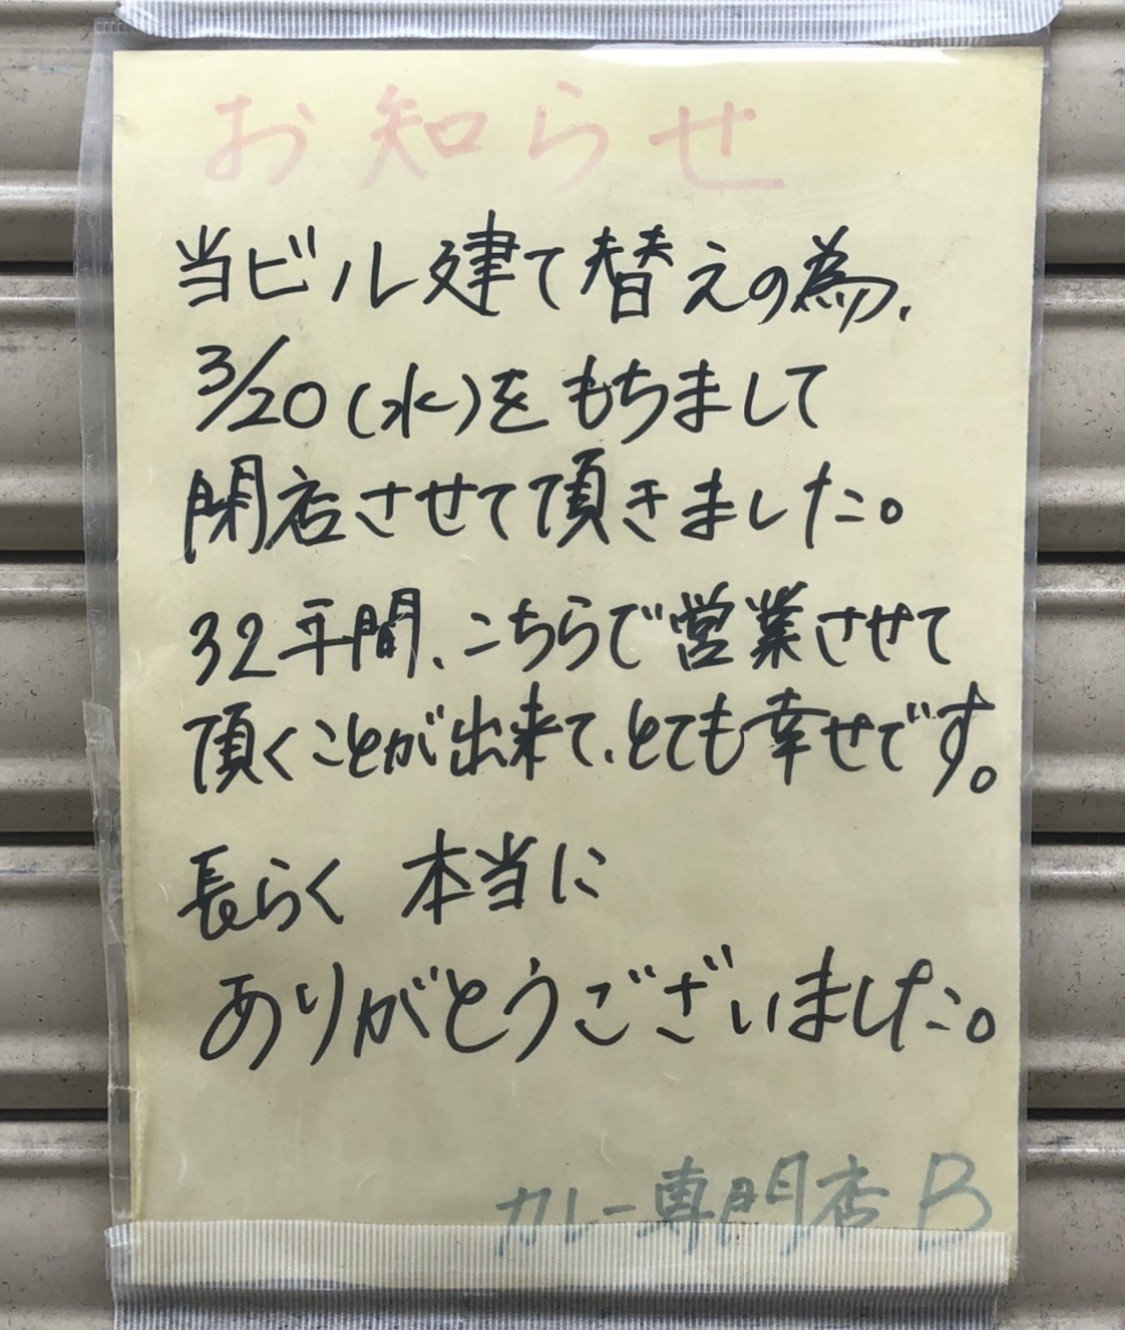 お知らせ
当ビル建て替えの為、
3/20(水)をもちまして
閉店させて頂きました。
32年間、こちらで営業させて
頂くことが出来て、とても幸せです。
長らく 本当に
ありがとうございました。
カレー専門店 B